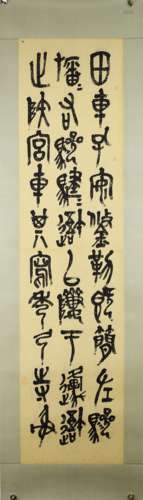 田車孔安鋚勒馮簡左驂
旛右驂騝邀以隮于原邀
止陝宮車其寫秀弓寺射